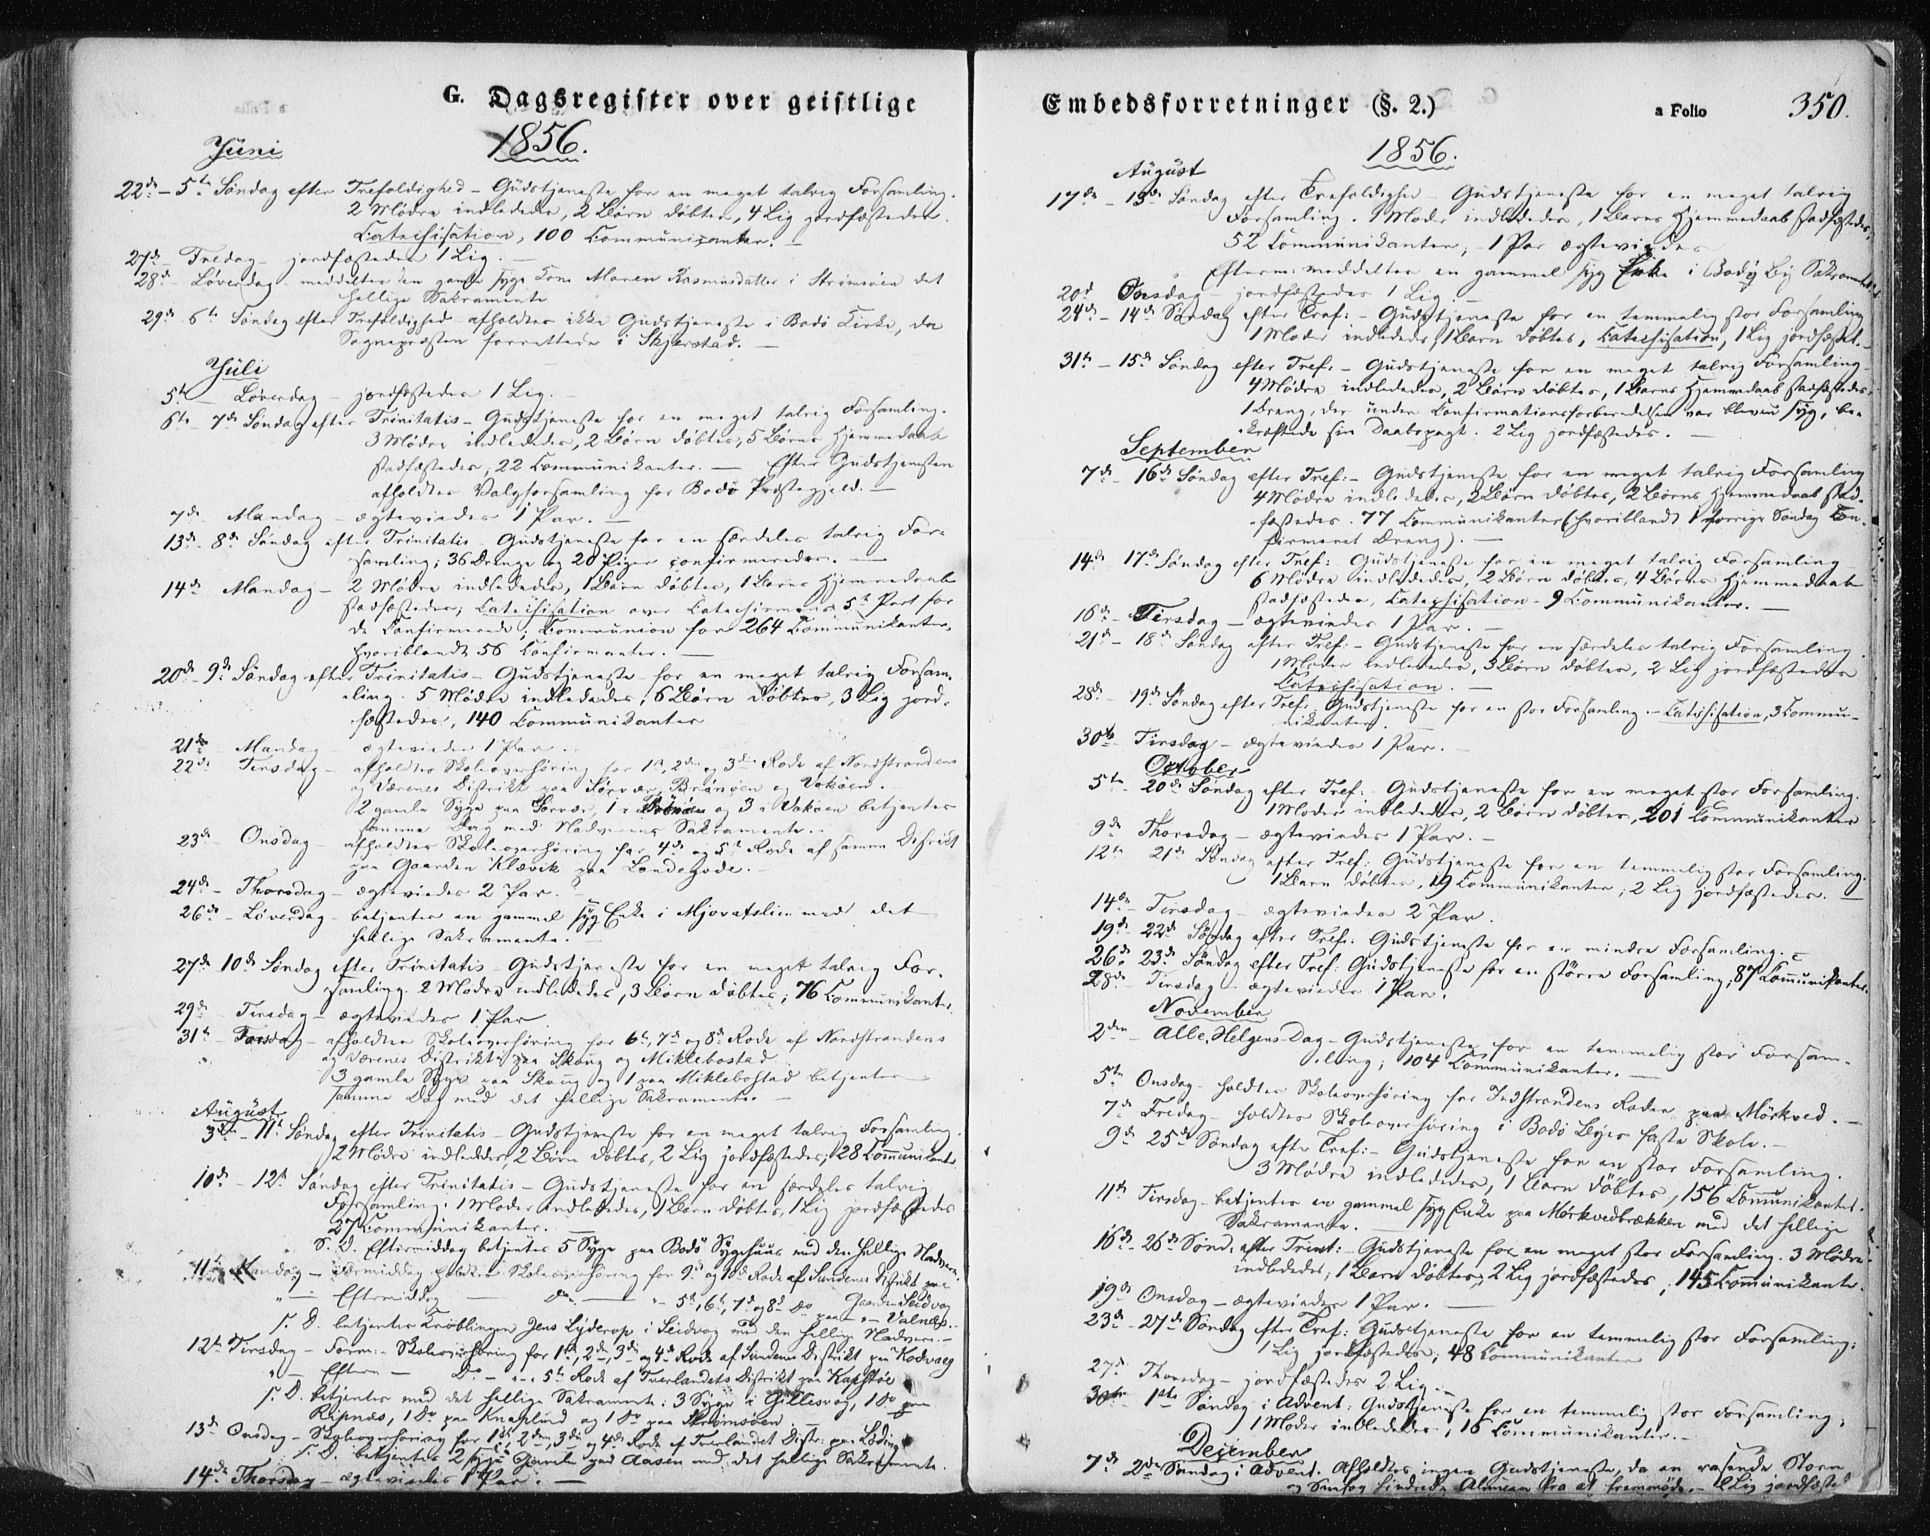 G. Dagsregister over geistlige
1856.
Juni
22de – 5te Søndag efter Trefoldighed – Gudstjeneste for en meget talrig Forsamling.
2 Mødre indledede, 2 Børn døbtes, 4 Lig jordfæstedes.
Catechisation, 100 Communicanter. –
27de – Fredag – jordfæstedes 1 Lig. –
28de – Løverdag meddeltes den gamle syge Kone Maren Rasmusdatter i Strømsøen det
hellige Sakramente
29de 6te Søndag efter Trefoldighed afholdtes ikke Gudstjeneste i Bodø Kirke, da
Sognepræsten forrettede i Skjerstad. –
Juli
5te – Løverdag – jordfæstedes 1 Lig. –
6te – 7de Søndag efter Trinitatis – Gudstjeneste for en meget talrig Forsamling.
3 Mødre indledede, 2 Børn døbtes, 5 Børns Hjemmedaab
stadfæstedes, 22 Communikanter. – Efter Gudstjenesten
afholdtes Valgforsamling for Bodø Præstegjeld. –
7de – Mandag – ægteviedes 1 Par. –
13de – 8de Søndag efter Trinitatis – Gudstjeneste for en særdeles talrig For-
samling; 36 Drenge og 20 Piger confirmeredes. –
14de Mandag – 2 Mødre indledede, 1 Barn døbtes, 1 Barns Hjemmedaab
stadfæstedes; Catechisation over Catechismens 5te Part for
de Confirmerede; Communion for 264 Communikanter,
hvoriblandt 56 Confirmanter. –
20de 9de Søndag efter Trinitatis – Gudstjeneste for en meget talrig Forsam-
ling. 5 Mødre indledede, 6 Børn døbtes, 3 Lig jord-
fæstedes, 140 Communikanter
21de – Mandag – ægteviedes 1 Par. –
22de – Tirsdag – afholdtes Skoleoverhøring for 1ste, 2den og 3die Rode af Nordstrandens
og Værenes Distrikt paa Sørvær, Brønøen og Vokøen. –
2 gamle Syge paa Sørvær, 1 i Brønøen og 3 i Vokøen betjentes
samme Dag med Nadverens Sakramente. –
23de – Onsdag – afholdtes Skoleoverhøring for 4de og 5te Rode af samme Distrikt
paa Gaarden Klævik paa Landegode. –
24de – Thorsdag – ægteviedes 2 Par. –
26de – Løverdag – betjentes en gammel syg Enke i Mjovatslien med det
hellige Sakramente. –
27de 10de Søndag efter Trinitatis – Gudstjeneste for en meget talrig For-
samling. 2 Mødre indledede, 3 Børn døbtes; 76 Communikanter.
29de – Tirsdag – ægteviedes 1 Par
31te – Torsdag – afholdtes Skoleoverhøring for 6te, 7de og 8de Rode af Nordstrandens
og Værenes Distrikt paa Skaug og Miklebostad
3 gamle Syge paa Skaug og 1 paa Miklebostad betjentes
samme Dag med det hellige Sakramente. –
August
3die – 11te Søndag efter Trinitatis – Gudstjeneste for en meget talrig Forsamling.
2 Mødre indlededes, 2 Børn døbtes, 2 Lig jordfæstedes; 28 Communikanter.
10de – 12te Søndag efter Trinitatis – Gudstjeneste for en særdeles talrig
Forsamling; 1 Moder indlededes, 1 Barn døbtes, 1 Lig jordfæstedes
27 Communikanter. –
S. D. Eftermiddag betjentes 5 Syge paa Bodø Sygehuus med den hellige Nadvere.
11te Mandag – Formiddag holdtes Skoleoverhøring for 9de og 10de Rode af Sundenes Distrikt paa
" – Eftermiddag – Do – " – 5te, 6te, 7de og 8de Do Gaarden Seidvog
paa " – Valnæs. –
S. D. betjentes Krøblingen Jens Lyderop i Seidvog med den hellige Nadvere. –
12te Tirsdag – Form: – Skoleoverhøring for 1ste, 2den, 3die og 4de Rode af Sundenes Distrikt paa Kodvaag
" – Efterm – Do – " – 5te Rode af Tverlandets Distrikt paa Kapstøe
S. D. betjentes med det hellige Sakramente: 3 Syge i Gillesvog, 1 Do paa
Ripnæs, 1 Do paa Knaplund og 1 Do paa Strømsøen –
13de Onsdag – Skoleoverhøring for 1ste, 2den, 3die og 4de Rode af Tverlandet Distr: paa Løding
S. D. betjentes 2 syge Gamle paa Aasen med det hellige Sakramente.
14de Thorsdag – ægteviedes 1 Par. –
Embedsforretninger (§. 2.)
a Folio 350.
1856.
August
17de – 13de Søndag efter Trefoldighe – Gudstjeneste for en meget talrig
Forsamling. 1 Moder indlededes, 1 Barns Hjemmedaab stadfæstedes,
52 Communikanter; – 1 Par ægteviedes
Efterm: meddeltes en gammel syg Enke i Bodø By Sakramentet
20de Onsdag – jordfæstedes 1 Lig. –
24de – 14de Søndag efter Tref: – Gudstjeneste for en temmelig stor Forsamling
1 Moder indlededes, 1 Barn døbtes, Catechisation, 1 Lig jordfæstet. –
31te – 15de Søndag efter Tref: – Gudstjeneste for en meget talrig Forsamling –
4 Mødre indlededes, 2 Børn døbtes, 1 Barns Hjemmedaab stadfæstedes.
1 Dreng, der under Confirmationsforberedelsen var bleven syg, be-
kræftede sin Daabspagt. 2 Lig jordfæstedes. –
September
7de – 16de Søndag efter Tref: – Gudstjeneste for en meget talrig Forsamling
4 Mødre indlededes, 2 Børn døbtes, 2 Børns Hjemmedaab stad-
fæstedes. 77 Communikanter (hvoriblandt 1 forrige Søndag Con-
firmeret Dreng). –
14de 17de Søndag efter Tref: Gudstjeneste for en meget talrig Forsamling
6 Mødre indlededes, 2 Børn døbtes, 4 Børns Hjemmedaab
stadfæstedes, Catechisation – 9 Communikanter. –
16de – Tirsdag – ægteviedes 1 Par. –
21de – 18de Søndag efter Tref: – Gudstjeneste for en særdeles talrig Forsamling.
1 Moder indlededes, 3 Børn døbtes, 2 Lig jordfæstedes
Catechisation. –
28de – 19de Søndag efter Tref: Gudstjeneste for en stor Forsamling. – Catechisation, 3 Commu-
nikanter.
30te Tirsdag – ægteviedes 1 Par. –
October
5te – 20de Søndag efter Tref: – Gudstjeneste for en meget stor Forsamling.
1 Moder indlededes, 2 Børn døbtes, 201 Communikanter
9de Thorsdag – ægteviedes 1 Par. –
12te 21de Søndag efter Tref: Gudstjeneste for en temmelig stor Forsamling.
1 Barn døbtes, 19 Communikanter; 2 Lig jordfæstedes. –
14de – Tirsdag – ægteviedes 2 Par.
19de – 22de Søndag efter Tref: Gudstjeneste for en mindre Forsamling. –
26de 23de Søndag efter Tref: Gudstjeneste for en større Forsamling; 87 Communikanter.
28de – Tirsdag – ægteviedes 1 Par.
November
2den – Alle Helgens Dag – Gudstjeneste for en temmelig stor Forsam-
ling; 104 Communikanter. –
5te Onsdag – holdtes Skoleoverhøring for Indstrandens Roder paa Mørkved. –
7de Fredag – holdtes Skoleoverhøring i Bodø Byes faste Skole. –
9de 25de Søndag efter Tref: – Gudstjeneste for en stor Forsamling.
3 Mødre indlededes, 1 Barn døbtes, 156 Communikanter.
11te Tirsdag – betjentes en gammel syg Enke paa Mørkvedbrækken med det hellige
Sakramente. –
16de – 26de Sønd: efter Trinit: – Gudstjeneste for en meget stor Forsamling. 3 Mødre
indlededes, 1 Barn døbtes, 2 Lig jordfæstedes, 145 Communikanter.
19de Onsdag – ægteviedes 1 Par. –
23de – 27de Søndag efter Tref: Gudstjeneste for en temmelig stor Forsamling:
1 Lig jordfæstedes; 48 Communikanter
27de Thorsdag – jordfæstedes 2 Lig. –
30te – 1ste Søndag i Advent: Gudstjeneste for en temmelig stor Forsamling;
1 Moder indlededes, 16 Communikanter. –
December
7de 2den Søndag i Advent. Afholdtes ingen Gudstjeneste, da en rasende Storm
og Snefog hindrede Almuen fra at fremmøde. – 2 Lig jordfæsted